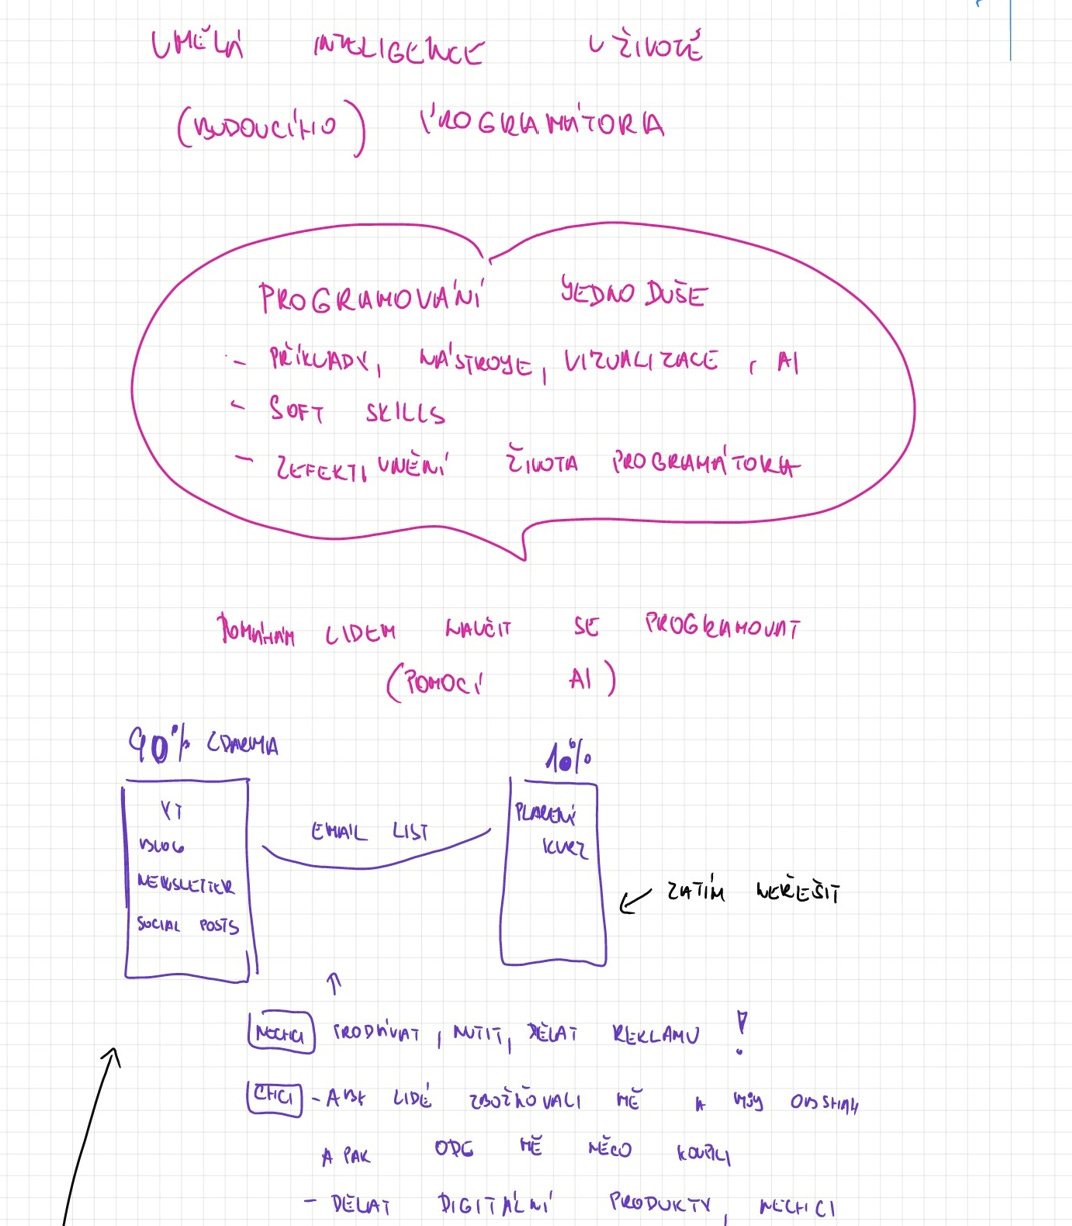 UMĚLÁ INTELIGENCE V ŽIVOTĚ
(BUDOUCÍHO) PROGRAMÁTORA
PROGRAMOVÁNÍ JEDNODUŠE
- PŘÍKLADY, NÁSTROJE, VIZUALIZACE, AI
- SOFT SKILLS
- ZEFEKTIVNĚNÍ ŽIVOTA PROGRAMÁTORA
POMÁHÁM LIDEM NAUČIT SE PROGRAMOVAT
(POMOCÍ AI)
90% ZDARMA
10%
YT
BLOG
NEWSLETTER
SOCIAL POSTS
EMAIL LIST
PLACENÝ
KURZ
ZATÍM NEŘEŠIT
NECHCI PRODÁVAT, NUTIT, DĚLAT REKLAMU !
CHCI - ABY LIDÉ ZBOŽŇOVALI MĚ A MŮJ OBSAH
A PAK ODE MĚ NĚCO KOUPILI
- DĚLAT DIGITÁLNÍ PRODUKTY, NECHCI